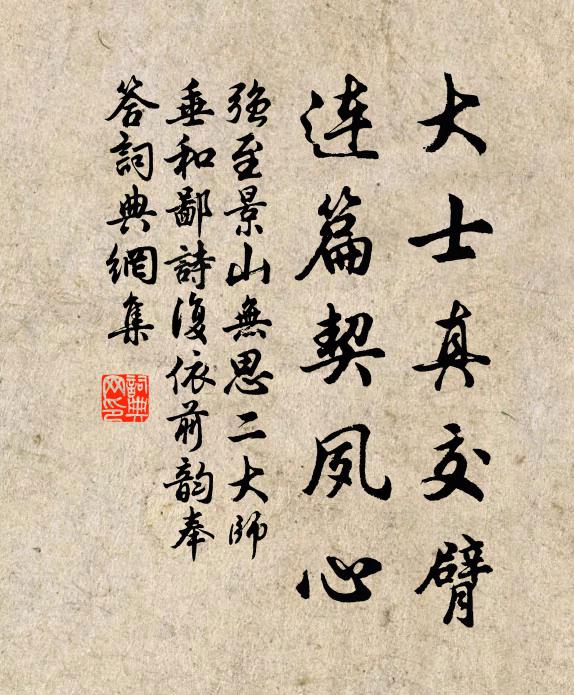 大士真交臂
连篇契夙心
强至景山無思二大师
垂和鄙詩復依前韵奉
答詞典網集
詞典网印